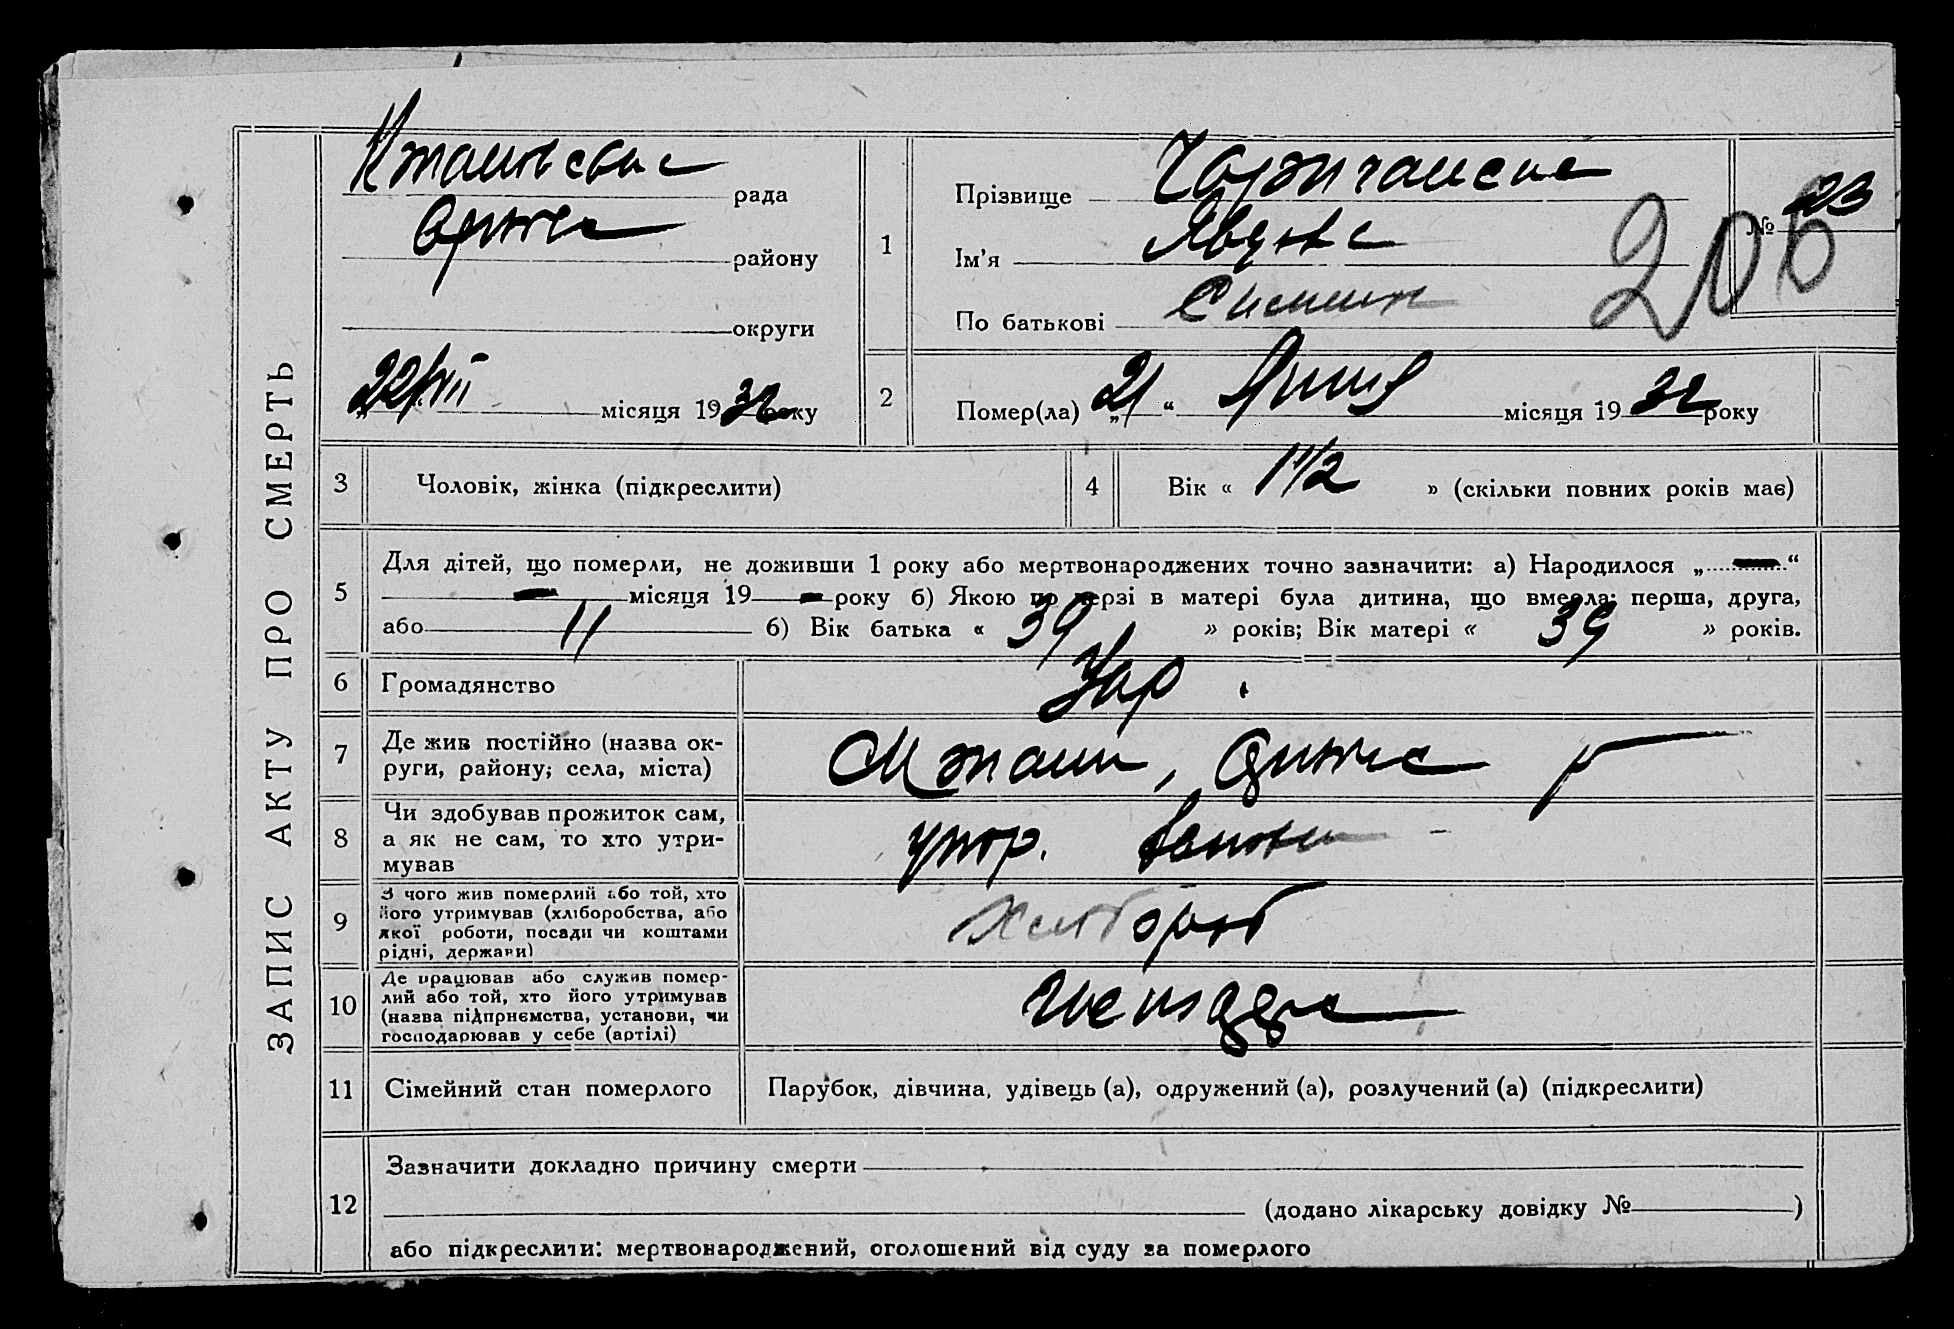 ЗАПИС АКТУ ПРО СМЕРТЬ
рада
району
округи
22/VIII місяця 1932 року
1
Прізвище
Ім'я Явдоха
По батькові
№ 23
206
2
Помер(ла) „21“ місяця 1932 року
3 Чоловік, жінка (підкреслити)
4 Вік « 1 1/2 » (скільки повних років має)
5
Для дітей, що померли, не доживши 1 року або мертвонароджених точно зазначити: а) Народилося „—“
— місяця 19 — року б) Якою по черзі в матері була дитина, що вмерла: перша, друга,
або 11 б) Вік батька « 39 » років; Вік матері « 39 » років.
6 Громадянство Укр.
7 Де жив постійно (назва ок-
руги, району; села, міста)
8 Чи здобував прожиток сам,
а як не сам, то хто утри-
мував
утр. батьки
9 З чого жив померлий або той, хто
його утримував (хліборобства, або
якої роботи, посади чи коштами
рідні, держави)
хлібороб
10 Де працював або служив помер-
лий або той, хто його утримував
(назва підприємства, установи, чи
господарював у себе (артілі)
11 Сімейний стан померлого Парубок, дівчина, удівець (а), одружений (а), розлучений (а) (підкреслити)
12
Зазначити докладно причину смерти
(додано лікарську довідку № )
або підкреслити: мертвонароджений, оголошений від суду за померлого